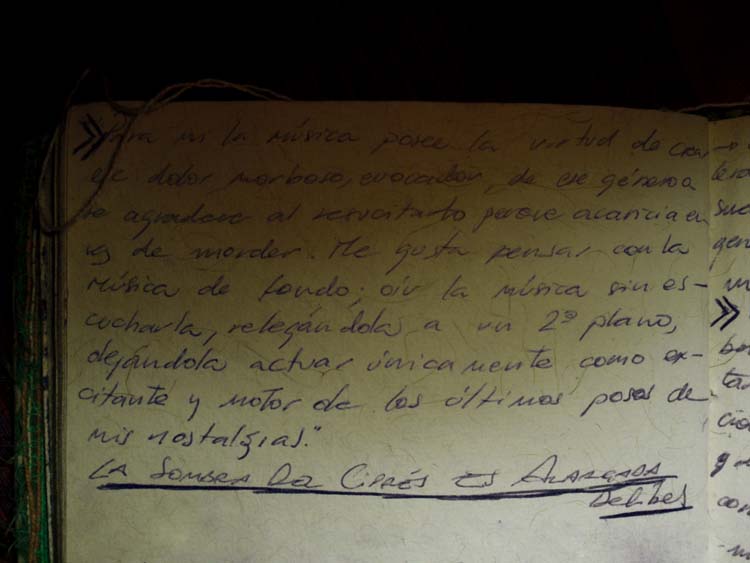 » Para mi la música posee la virtud de crear
ese dolor morboso, evocador, de ese género q
se agradece al resucitarlo porque acaricia en
vez de morder. Me gusta pensar con la
música de fondo; oír la música sin es-
cucharla, relegándola a un 2º plano,
dejándola actuar únicamente como ex-
citante y motor de los últimos posos de
mis nostalgias."
LA SOMBRA DEL CIPRÉS ES ALARGADA
DELIBES
»